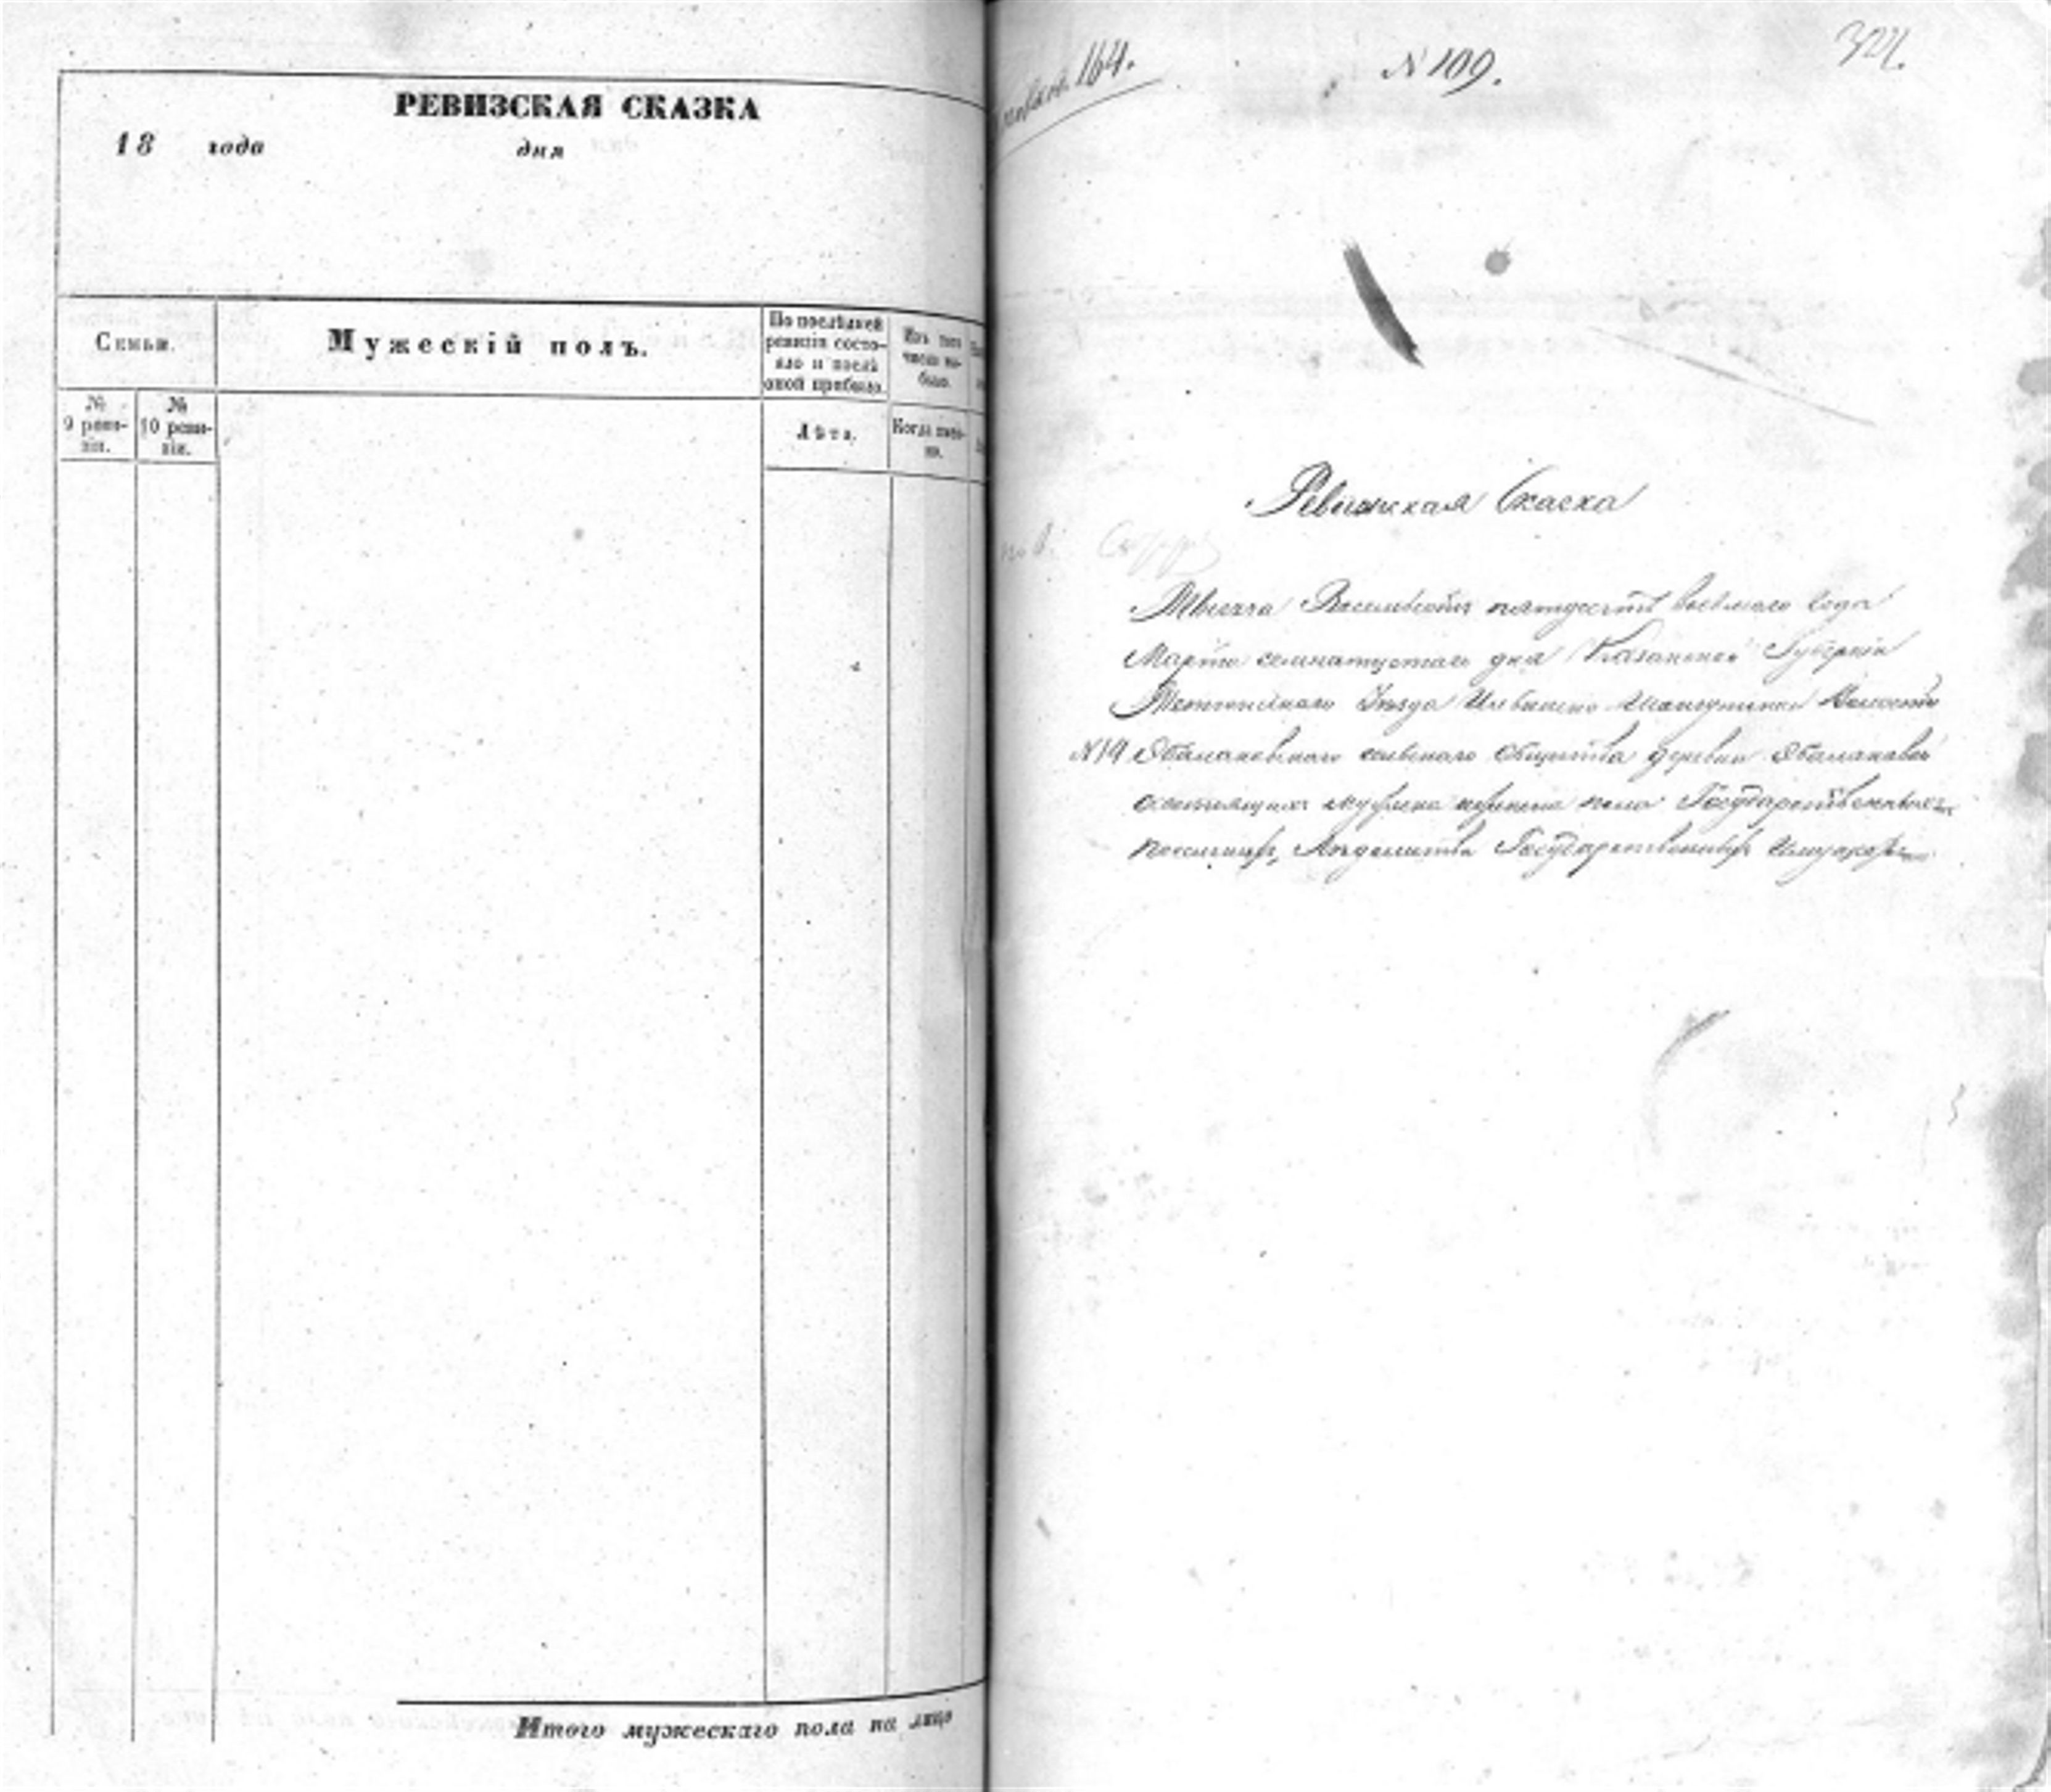 РЕВИЗСКАЯ СКАЗКА
18 года дня
Семьи.
Мужескій полъ.
По послѣдней ревизіи состояло и послѣ оной прибыло.
Изъ того числа выбыло.
№ 9 ревизіи.
№ 10 ревизіи.
Лѣта.
Когда именно.
Итого мужескаго пола на лицо
164.
N 109.
324.
Ревижская Скаска
Тысяча Восемьсотъ пятьдесятъ восьмаго Года
Марта семнатцетаго дня Казанской Губерніи
Тетюшскаго Уезда Волости
N 19 сельскаго Общества деревни
состоящихъ мужска женска пола Государственныхъ
Государственныхъ Имуществъ